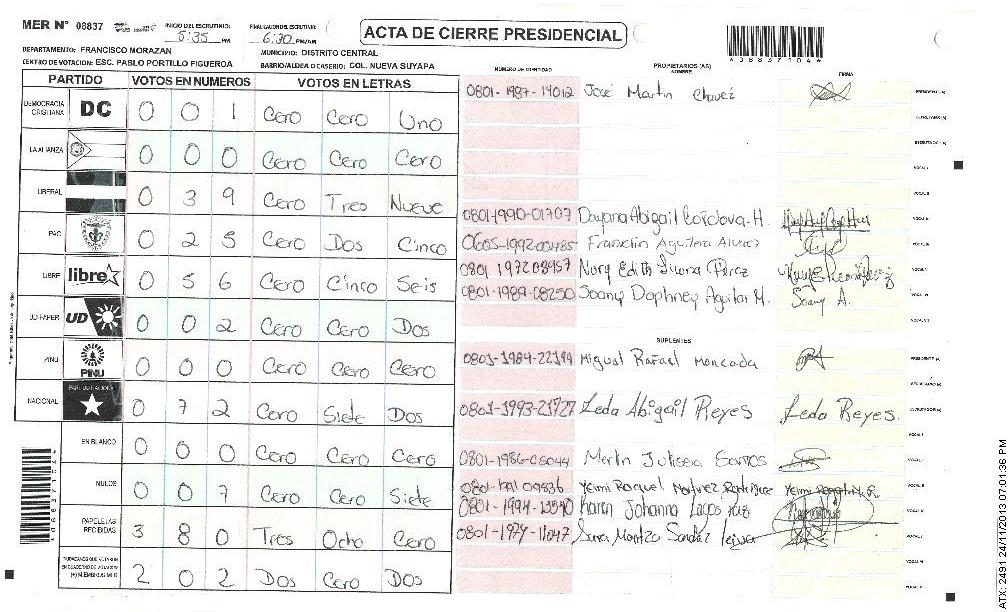 MER N° 08837
INICIO DEL ESCRUTINIO: 5:35 PM
FINALIZACION ESCRUTINIO: 6:30 PM/AM
ACTA DE CIERRE PRESIDENCIAL
*08837104*
DEPARTAMENTO: FRANCISCO MORAZAN
MUNICIPIO: DISTRITO CENTRAL
CENTRO DE VOTACION: ESC. PABLO PORTILLO FIGUEROA
BARRIO/ALDEA O CASERIO: COL. NUEVA SUYAPA
PARTIDO VOTOS EN NUMEROS VOTOS EN LETRAS
NUMERO DE IDENTIDAD PROPIETARIOS (AS) NOMBRE FIRMA
DEMOCRACIA CRISTIANA DC 0 0 1 Cero Cero Uno
LA ALIANZA 0 0 0 Cero Cero Cero
LIBERAL 0 3 9 Cero Tres Nueve
PAC 0 2 5 Cero Dos Cinco
LIBRE libre 0 5 6 Cero Cinco Seis
UD-FAPER UD 0 0 2 Cero Cero Dos
PINU PINU 0 0 0 Cero Cero Cero
NACIONAL PARTIDO NACIONAL 0 7 2 Cero Siete Dos
EN BLANCO 0 0 0 Cero Cero Cero
NULOS 0 0 7 Cero Cero Siete
PAPELETAS RECIBIDAS 3 8 0 Tres Ocho Cero
CIUDADANOS QUE VOTARON EN CUADERNO DE VOTACION (+) MIEMBROS MER 2 0 2 Dos Cero Dos
0801-1987-14012 José Martin Chavez PRESIDENTE (A)
SECRETARIO (A)
ESCRUTADOR (A)
VOCAL I
VOCAL II
0801-1990-01707 Dayana Abigail Cordova H. VOCAL III
0605-1992-00485 Franklin Aguilera Alvarez
0801 1972 08957 Nury Edith VOCAL V
0801-1989-08250 Soany Daphney Aguilar M. Soany A.
VOCAL VII
SUPLENTES
0801-1984-22194 Miguel Rafael Moncada PRESIDENTE (A)
SECRETARIO (A)
0801-1993-21727 Leda Abigail Reyes Leda Reyes. ESCRUTADOR (A)
VOCAL I
0801-1986-05044 Merlin Julissa Santos
0801-1991 09836 Yeimi Raquel Martinez Rodriguez
0801-1994-13540 Karen Johanna Lagos
0801-1979-11047 Sara Maritza
*08837104*
ATX: 2491 24/11/2013 07:01:36 PM